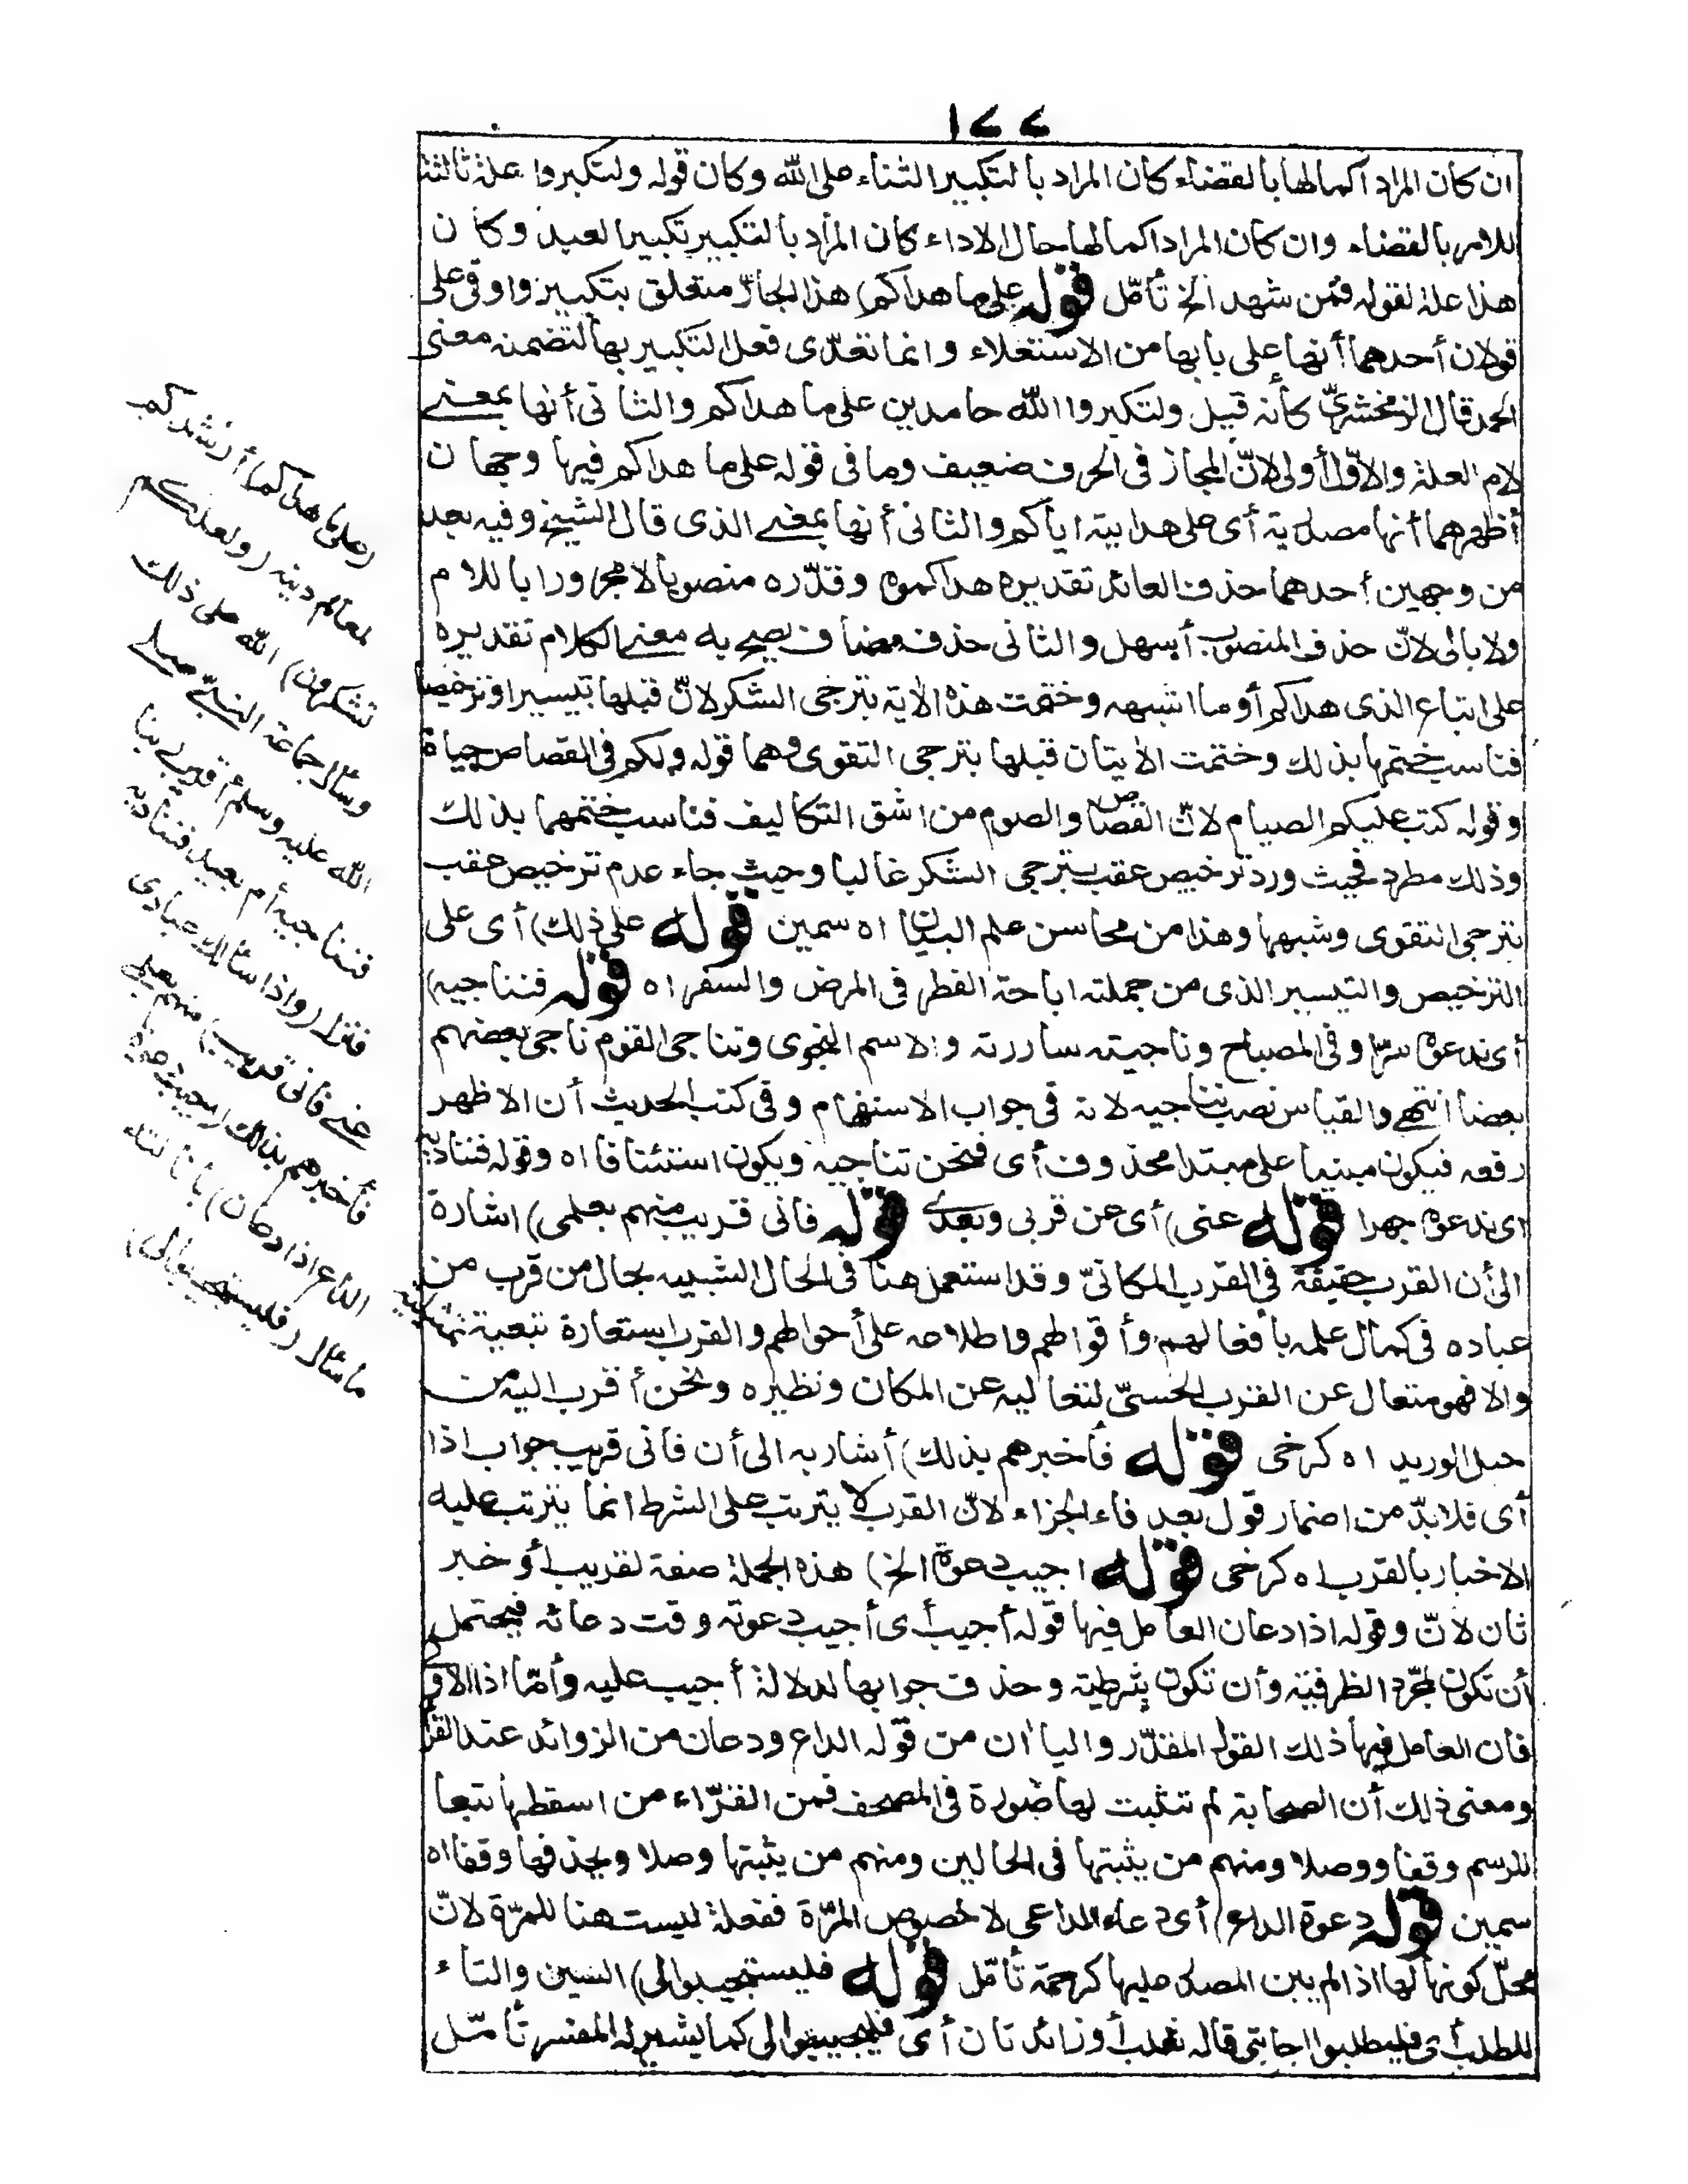 ١٧٧
ان كان المراد اكمالها بالقضاء كان المراد بالتكبير الثناء على الله وكان قوله ولتكبروا علة ثالثة
للامر بالقضاء وان كان المراد اكمالها حال الاداء كان المراد بالتكبير تكبير العيد وكان
هذا علة لقوله فمن شهد الخ تأمّل قوله على ما هداكم) هذا الجارّ متعلق بتكبيروا وفى على
قولان أحدهما أنها على بابها من الاستعلاء وانما تعدّى فعل التكبير بها لتضمنه معنى
الحمد قال الزمخشرىّ كأنه قيل ولتكبروا الله حامدين على ما هداكم والثانى أنها بمعنى
لام العلة والاوّل أولى لانّ المجاز فى الحرف ضعيف وما فى قوله على ما هداكم فيها وجهان
أظهرهما أنها مصدرية أى على هدايته اياكم والثانى أنها بمعنى الذى قال الشيخ وفيه بعد
من وجهين أحدهما حذف العائد تقديره هداكموه وقدّره منصوبا لا مجرورا باللام
ولا بالى لانّ حذف المنصوب أسهل والثانى حذف مضاف يصح به معنى الكلام تقديره
على اتباع الذى هداكم أو ما اشبهه وختمت هذه الآية بترجى الشكر لانّ قبلها تيسيرا وترخيصا
فناسب ختمها بذلك وختمت الآيتان قبلها بترجى التقوى وهما قوله ولكم فى القصاص حياة
وقوله كتب عليكم الصيام لانّ القصاص والصوم من اشق التكاليف فناسب ختمهما بذلك
وذلك مطرد فحيث ورد ترخيص عقب بترجى الشكر غالبا وحيث جاء عدم ترخيص عقب
بترجى التقوى وشبهها وهذا من محاسن علم البيان اه سمين قوله على ذلك) أى على
الترخيص والتيسير الذى من جملته اباحة الفطر فى المرض والسفر اه قوله فنناجيه)
أى ندعوه سرّا وفى المصباح وناجيته ساررته والاسم النجوى وتناجى القوم ناجى بعضهم
بعضا انتهى والقياس نصب نناجيه لانه فى جواب الاستفهام وفى كتب الحديث أن الاظهر
رفعه فيكون مبنيا على مبتدا محذوف أى فنحن نناجيه ويكون استئنافا اه وقوله فنناديه
اى ندعوه جهرا قوله عنى) أى عن قربى وبعدى قوله فانى قريب منهم بعلمى) اشارة
الى أن القرب حقيقة فى القرب المكانىّ وقد استعمل هنا فى الحال الشبيه بحال من قرب من
عباده فى كمال علمه بأفعالهم وأقوالهم واطلاعه على أحوالهم والقرب استعارة تبعية تمثيلية
والا فهو متعال عن القرب الحسىّ لتعاليه عن المكان ونظيره ونحن أقرب اليه من
حبل الوريد اه كرخى قوله فأخبرهم بذلك) أشار به الى أن فانى قريب جواب اذا
أى فلا بدّ من اضمار قول بعد فاء الجزاء لانّ القرب لا يترتب على الشرط انما يترتب عليه
الاخبار بالقرب اه كرخى قوله اجيب دعوة الخ) هذه الجملة صفة لقريب أو خبر
ثان لانّ وقوله اذا دعان العامل فيها قوله أجيب أى أجيب دعوته وقت دعائه فيحتمل
أن تكون لمجرّد الظرفية وأن تكون شرطية وحذف جوابها لدلالة أجيب عليه وأمّا اذا الاولى
فان العامل فيها ذلك القول المقدّر واليا ان من قوله الداع ودعان من الزوائد عند القرّا
ومعنى ذلك أن الصحابة لم تثبت لها صورة فى المصحف فمن القرّاء من اسقطها تبعا
للرسم وقفا ووصلا ومنهم من يثبتها فى الحالين ومنهم من يثبتها وصلا ويحذفها وقفا اه
سمين قوله دعوة الداع) أى دعاء الداعى لا خصوص المرّة ففعلة ليست هنا للمرّة لانّ
محلّ كونها لها اذا لم يبن المصدر عليها كرحمة تأمّل قوله فليستجيبوا لى) السين والتاء
للطلب أى فليطلبوا اجابتى قاله ثعلب أو زائدتان أى فليجيبوا لى كما يشير له المفسر تأمّل
(على ما هداكم) أرشدكم
لمعالم دينه (ولعلكم
تشكرون) الله على ذلك
وسأل جماعة النبىّ صلى
الله عليه وسلم أقريب ربنا
فنناجيه أم بعيد فنناديه
فنزل (واذا سألك عبادى
عنى فانى قريب) منهم بعلمى
فأخبرهم بذلك (أجيب دعوة
الداع اذا دعان) بانالته
ما سأل (فليستجيبوا لى)